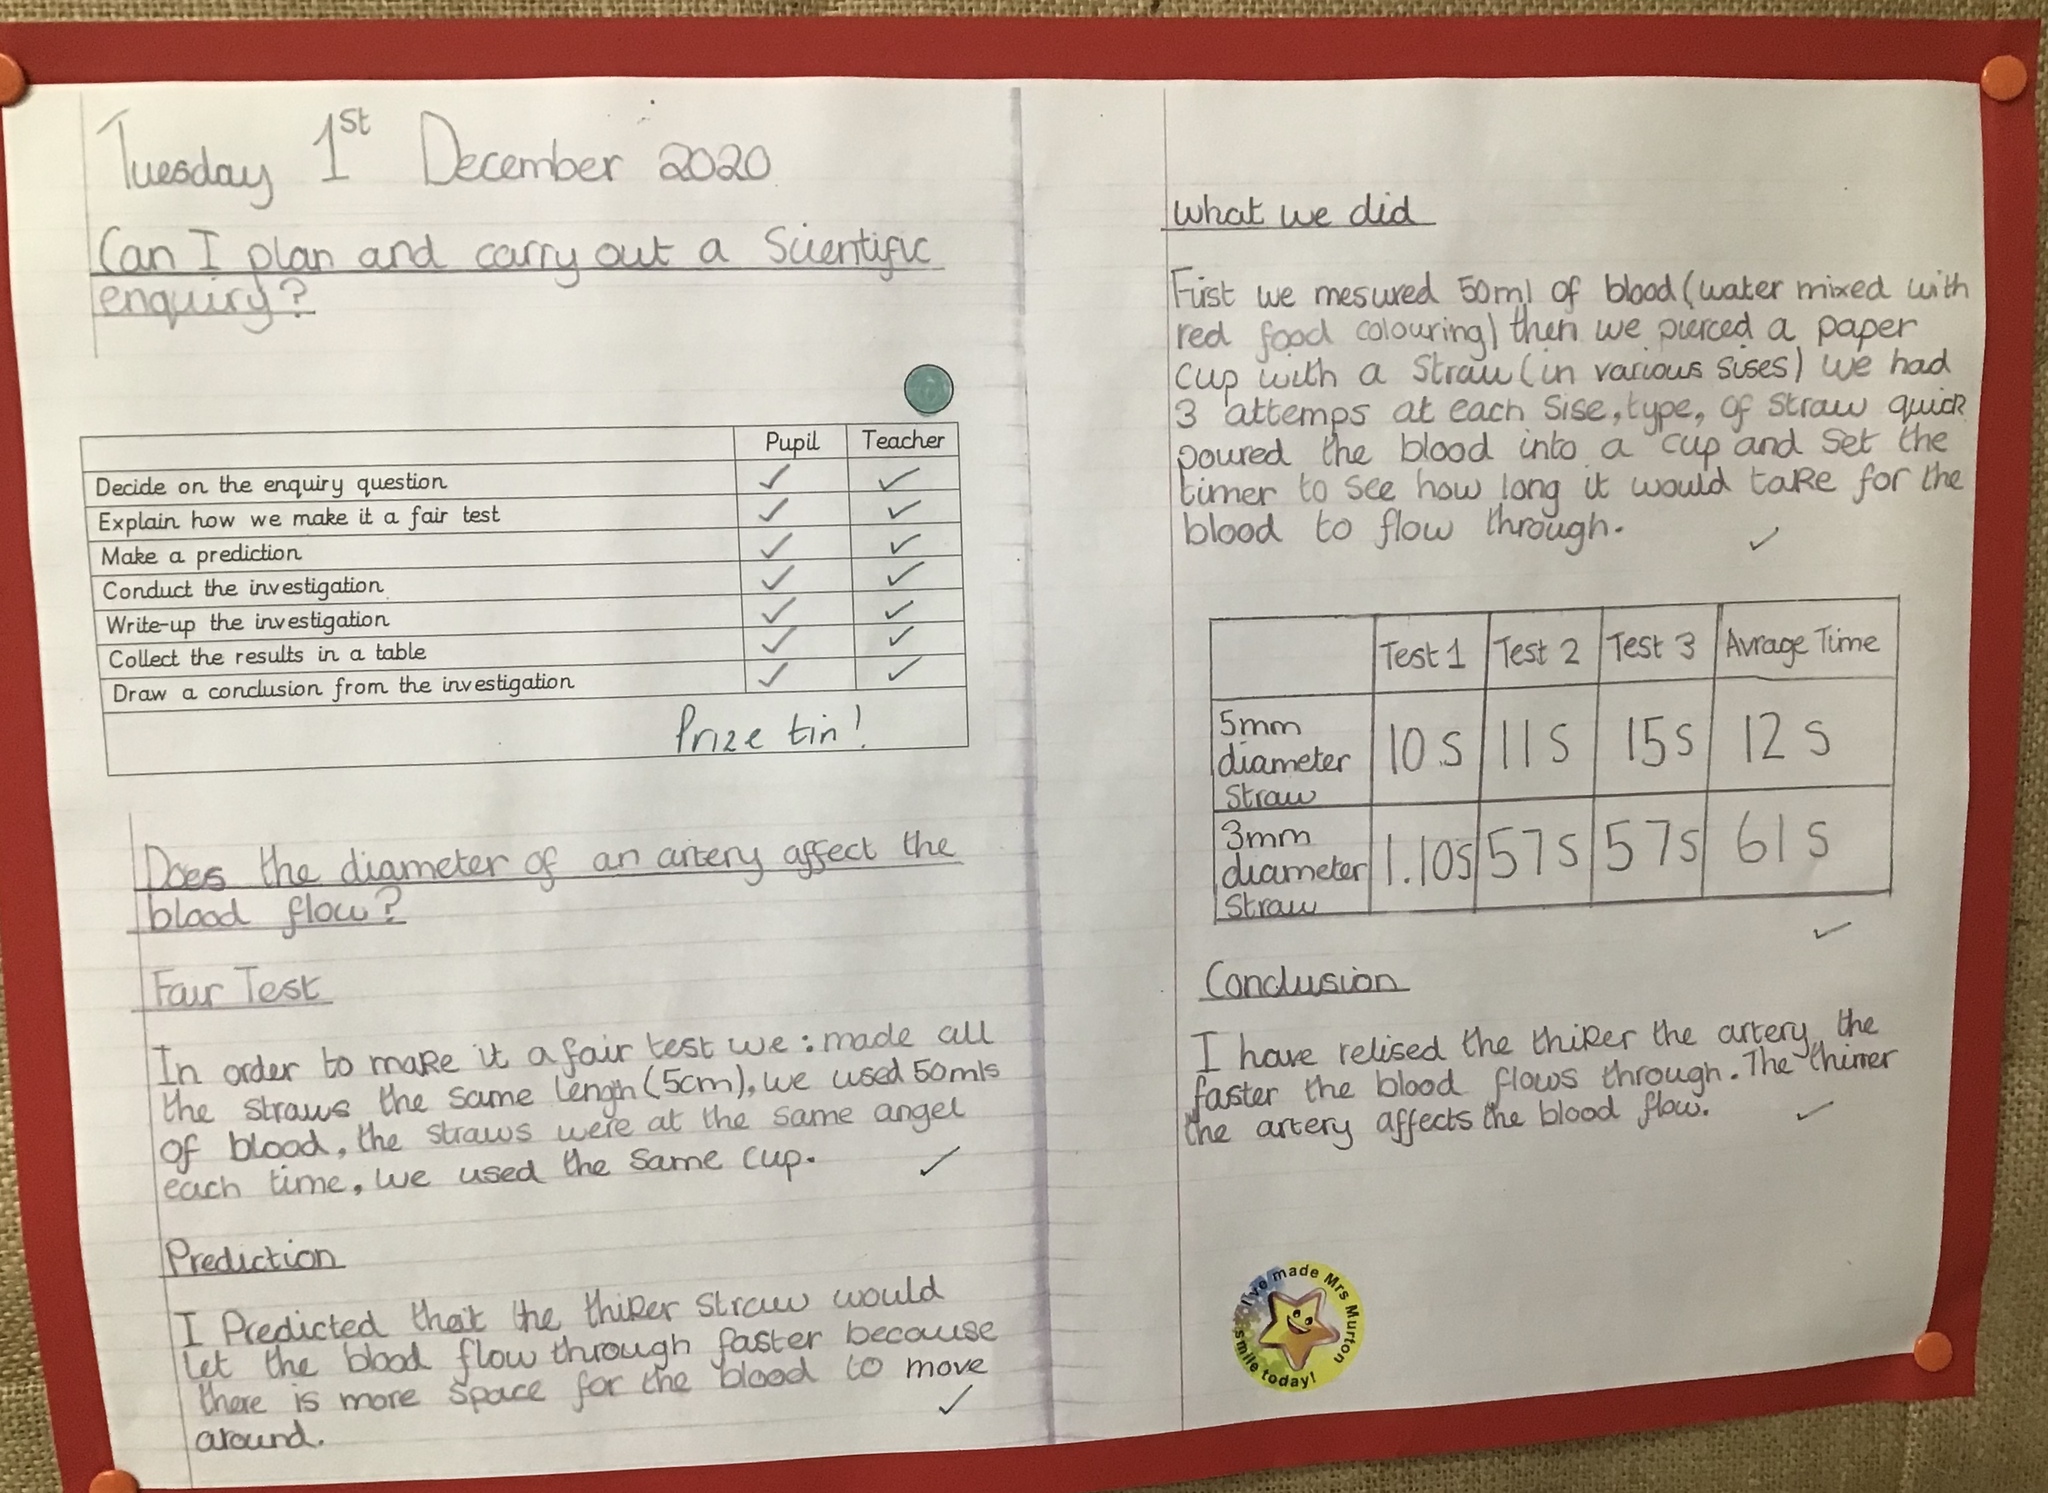 Tuesday 1st December 2020
Can I plan and carry out a Scientific
enquiry?
Pupil Teacher
Decide on the enquiry question ✓ ✓
Explain how we make it a fair test ✓ ✓
Make a prediction ✓ ✓
Conduct the investigation ✓ ✓
Write-up the investigation ✓ ✓
Collect the results in a table ✓ ✓
Draw a conclusion from the investigation ✓ ✓
Prize tin!
Does the diameter of an artery affect the
blood flow?
Fair Test
In order to make it a fair test we : made all
the straws the same lengh (5cm), we used 50mls
of blood, the straws were at the same angel
each time, we used the same cup. ✓
Prediction
I Predicted that the thiker straw would
let the blood flow through faster because
there is more space for the blood to move
around. ✓
What we did
First we mesured 50ml of blood (water mixed with
red food colouring) then we pierced a paper
cup with a straw (in various sises) we had
3 attemps at each sise, type, of straw quick
poured the blood into a cup and set the
timer to see how long it would take for the
blood to flow through. ✓
Test 1 Test 2 Test 3 Avrage Time
5mm
diameter
straw
10 s 11 s 15 s 12 s
3mm
diameter
straw
1.10s 57s 57s 61 s
✓
Conclusion
I have relised the thiker the artery, the
faster the blood flows through. The thinner
the artery affects the blood flow. ✓
I've made Mrs Murton
smile today!